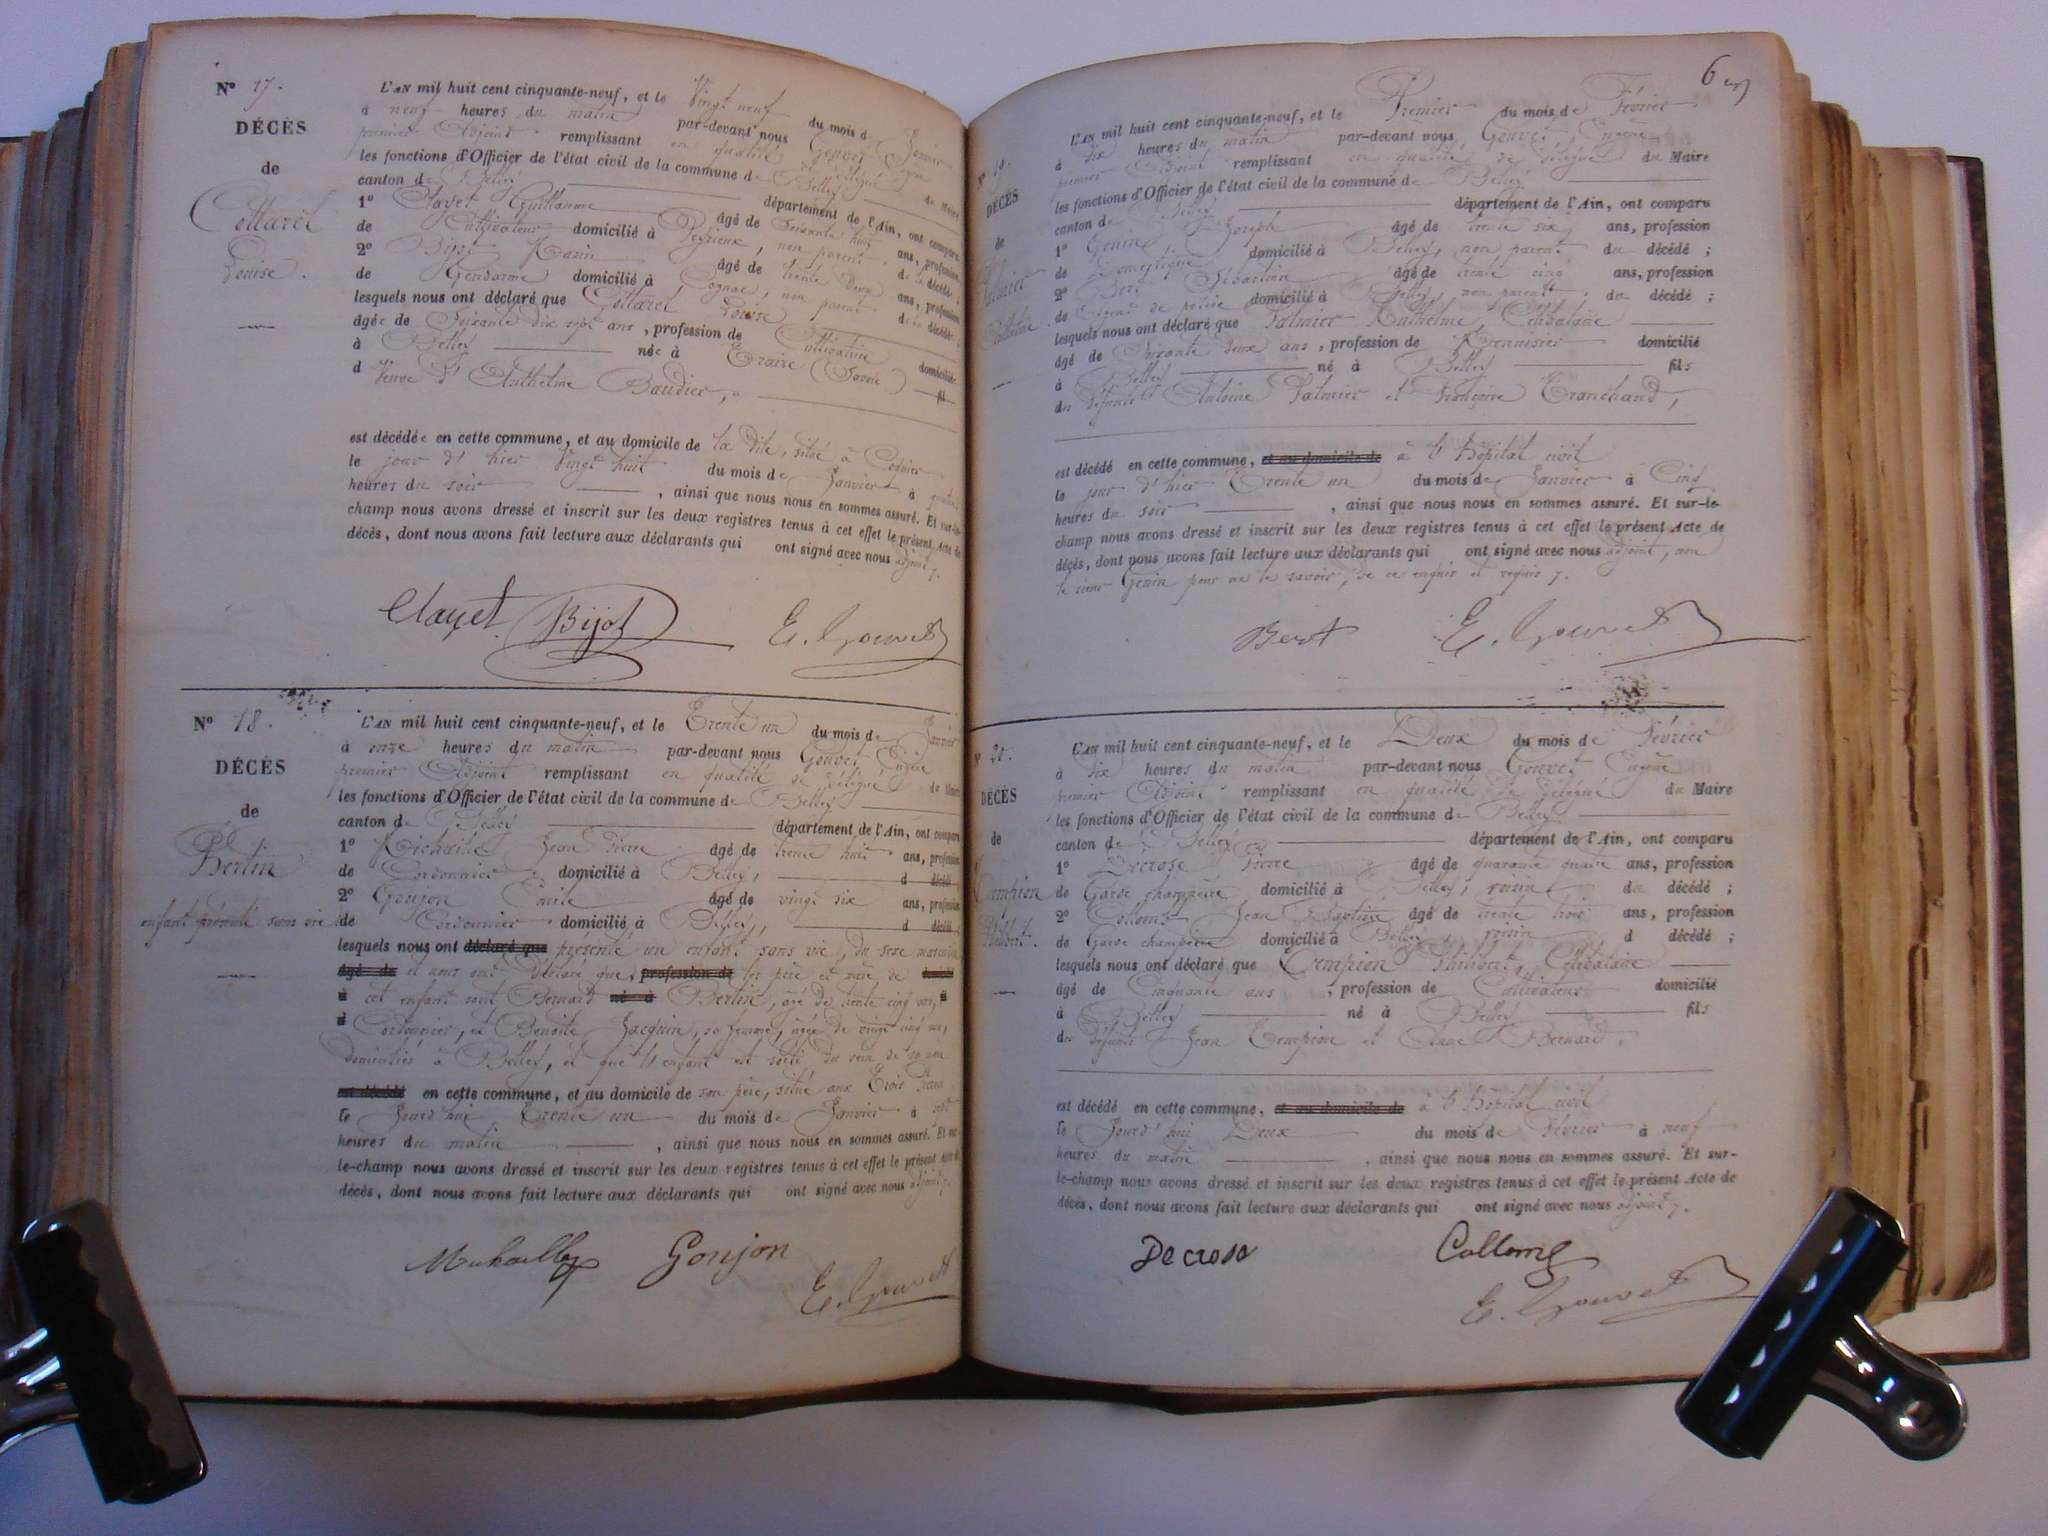 N° 17.
DÉCÈS
de
Collarel
Louise.
L'AN mil huit cent cinquante-neuf, et le Vingt neuf du mois de Janvier
à neuf heures du matin par-devant nous Gouvet Eugène
premier Adjoint remplissant en qualité de délégué du Maire
les fonctions d'Officier de l'état civil de la commune de Belley
canton de Belley département de l'Ain, ont comparu
1° Clayet Guillaume âgé de Soixante huit ans, profession
de Cultivateur domicilié à Peyrieux, non parent de la décédée;
2° Bijot âgé de trente deux ans, profession
de Gendarme domicilié à Cognac, non parent de la décédée;
lesquels nous ont déclaré que Collarel Louise
âgée de Soixante dix sept ans, profession de Cultivatrice domiciliée
à Belley née à Traize (Savoie) fil
d Veuve d'Anthelme Baudier,
est décédée en cette commune, et au domicile de la dite, situé à
le jour d'hier Vingt huit du mois de Janvier à quatre
heures du soir, ainsi que nous nous en sommes assuré. Et sur-le-
champ nous avons dressé et inscrit sur les deux registres tenus à cet effet le présent Acte de
décès, dont nous avons fait lecture aux déclarants qui ont signé avec nous adjoint.
Clayet Bijot E. Gouvet
N° 18.
DÉCÈS
de
Bertin
enfant présenté sans vie
L'AN mil huit cent cinquante-neuf, et le Trente un du mois de Janvier
à onze heures du matin par-devant nous Gouvet Eugène
premier Adjoint remplissant en qualité de délégué du Maire
les fonctions d'Officier de l'état civil de la commune de Belley
canton de Belley département de l'Ain, ont comparu
1° Jean Pierre âgé de trente huit ans, profession
de Cordonnier domicilié à Belley, d décédé
2° Goujon Emile âgé de vingt six ans, profession
de Cordonnier domicilié à Belley, d décédé
lesquels nous ont déclaré que présenté un enfant sans vie, du sexe masculin
âgé de et nous ont déclaré que profession de les père et mère de
à cet enfant sont Bernard né à Bertin, âgé de trente cinq ans,
d Cordonnier, et Benoite Jacquin, sa femme, âgée de vingt cinq ans,
domiciliés à Belley, et que l'enfant est sorti du sein de sa mère
est décédé en cette commune, et au domicile de son père, situé aux Trois
le Jourd'hui Trente un du mois de Janvier à sept
heures du matin, ainsi que nous nous en sommes assuré. Et sur-
le-champ nous avons dressé et inscrit sur les deux registres tenus à cet effet le présent Acte de
décès, dont nous avons fait lecture aux déclarants qui ont signé avec nous adjoint.
Goujon
E. Gouvet
6
N° 19.
DÉCÈS
de
Palmier
Anthelme
L'AN mil huit cent cinquante-neuf, et le Premier du mois de Février
à dix heures du matin par-devant nous Gouvet, Eugène
premier Adjoint remplissant en qualité de délégué du Maire
les fonctions d'Officier de l'état civil de la commune de Belley
canton de Belley département de l'Ain, ont comparu
1° Genin Joseph âgé de trente six ans, profession
de Domestique domicilié à Belley, non parent du décédé;
2° Bert Sébastien âgé de trente cinq ans, profession
de Agent de police domicilié à Belley, non parent du décédé;
lesquels nous ont déclaré que Palmier Anthelme Célibataire
âgé de Soixante deux ans, profession de domicilié
à Belley né à Belley fils
des défunts Antoine Palmier et Françoise Tranchand,
est décédé en cette commune, et au domicile de à l'Hôpital civil
le jour d'hier Trente un du mois de Janvier à Cinq
heures du soir, ainsi que nous nous en sommes assuré. Et sur-le-
champ nous avons dressé et inscrit sur les deux registres tenus à cet effet le présent Acte de
décès, dont nous avons fait lecture aux déclarants qui ont signé avec nous adjoint, non
le sieur Genin pour ne le savoir, de ce enquis et requis.
Bert E. Gouvet
N° 20.
DÉCÈS
de
Tempion
Philibert.
L'AN mil huit cent cinquante-neuf, et le Deux du mois de Février
à dix heures du matin par-devant nous Gouvet Eugène
premier Adjoint remplissant en qualité de délégué du Maire
les fonctions d'Officier de l'état civil de la commune de Belley
canton de Belley département de l'Ain, ont comparu
1° Decrose Pierre âgé de quarante quatre ans, profession
de Garde champêtre domicilié à Belley, voisin du décédé;
2° Collomb Jean Baptiste âgé de trente trois ans, profession
de Garde champêtre domicilié à Belley, voisin d décédé;
lesquels nous ont déclaré que Tempion Philibert, Célibataire
âgé de Cinquante ans, profession de Cultivateur domicilié
à Belley né à Belley fils
des défunts Jean Tempion et Anne Bernard,
est décédé en cette commune, et au domicile de à l'Hôpital civil
le Jourd'hui Deux du mois de Février à neuf
heures du matin, ainsi que nous nous en sommes assuré. Et sur-
le-champ nous avons dressé et inscrit sur les deux registres tenus à cet effet le présent Acte de
décès, dont nous avons fait lecture aux déclarants qui ont signé avec nous adjoint.
Decrose Collomb
E. Gouvet